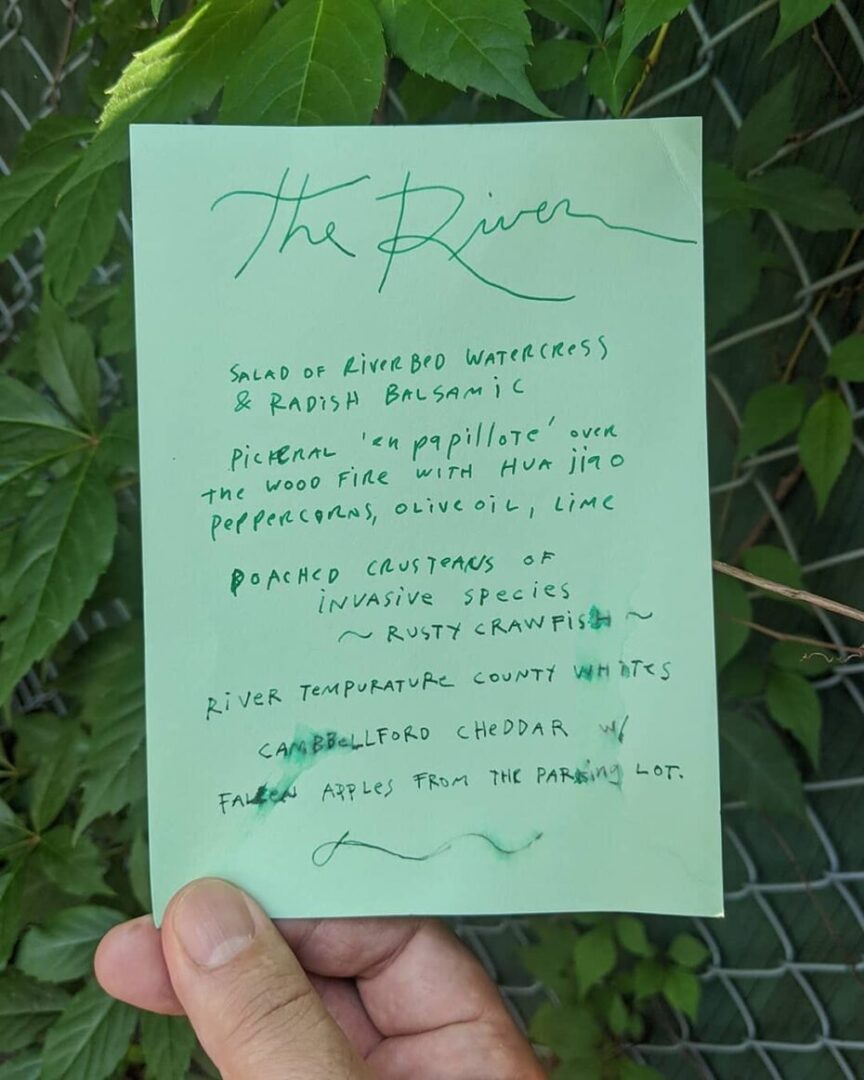 The River
SALAD OF RIVERBED WATERCRESS
& RADISH BALSAMIC
PICKERAL 'en papillote' OVER
the WOOD FIRE WITH HUA JIAO
PEPPERCORNS, OLIVE OIL, LIME
POACHED CRUSTEANS OF
INVASIVE SPECIES
~ RUSTY CRAWFISH ~
RIVER TEMPURATURE COUNTY WHITES
CAMBBELLFORD CHEDDAR W/
FALLEN APPLES FROM THE PARKING LOT.